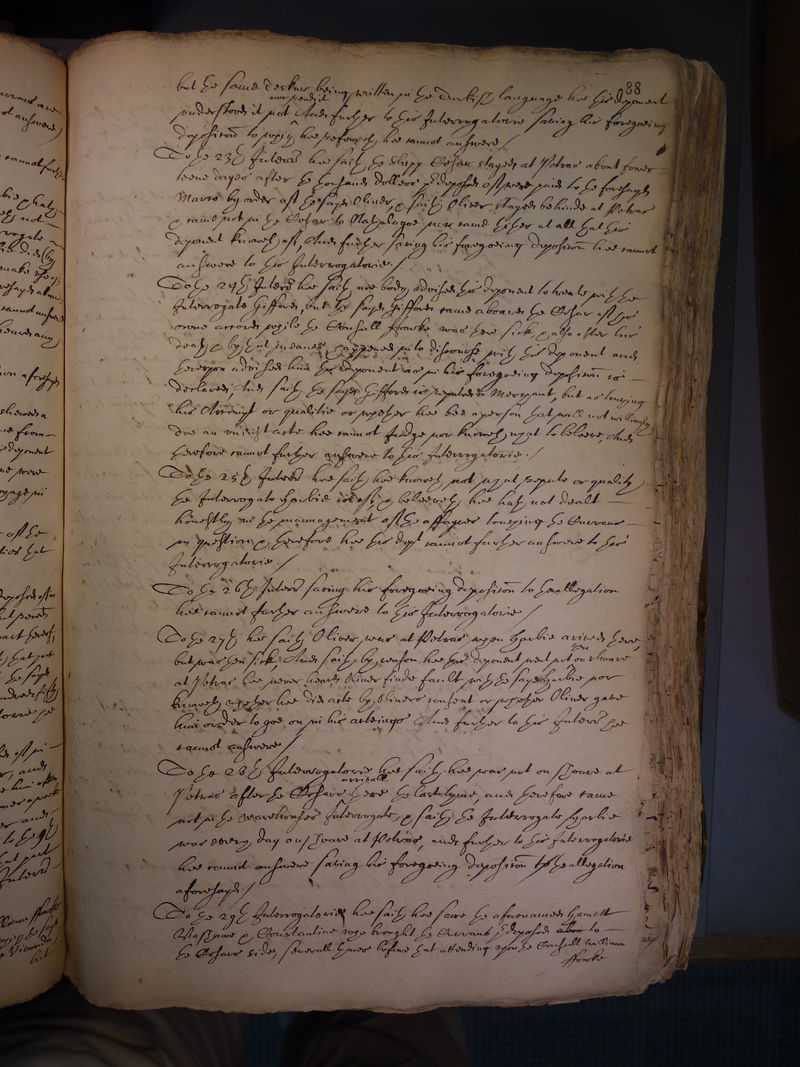 88
but the same being written in the Turkish language hee this deponent
understood it not And further to this Interrogatorie saving his foregoeing
deposition to which hee referreth hee cannot answere /
To the 23th Interrie hee saith the shipp stayed at Petras about fower
teene dayes after the thousand dollers predeposed of were paid to the foresayd
by order of the sayd Oliver, & saith Oliver stayed behinde at Petras
& came not in the to nor came thither at all that this
deponent knoweth of, And further saving his foregoeing deposition hee cannot
answere to this Interrogatorie. /
To the 24th Interrie hee saith noe body advised this deponent to treate with the
Interrogate Gifford, but the sayd Gifford came aboard the of his
owne accord while the Consull was there sick, & also after his
death, & by that meanes happened into discourse with this deponent and
thereupon advised him this deponent as in his foregoeing deposition is
declared, And saith the sayd Gifford is reputed a Merchant, but as touching
his or qualitie or whether hee bee a person that will not willingly
doe an unjust acte hee cannot judge nor knoweth what to beleeve, And
therefore cannot further answere to this Interrogatorie. /
To the 25th Interrie hee saith hee knoweth not what repute or quality
the Interrogate Harbie is of, & beleeveth hee hath not dealt
honestly in the mannagement of the affayres touching the Currans
in question, & therefore hee this dept cannot further answere to this
Interrogatorie /
To the 26th Interrie saving his foregoeing deposition to the allegation
hee cannot further answere to this Interrogatorie /
To the 27th hee saith Oliver was at Petras when Harbie arived there,
but was then sick, And saith by reason hee this deponent went not on shoare
at Petras hee never heard Oliver finde fault with the sayd Harbie nor
knoweth whether hee did acte by Olivers consent or whether Oliver gave
him order to goe on in his acteings And further to this Interrie hee
cannot answere /
To the 28th Interrogatorie hee saith hee was not on shoare at
Petras after the arrivall there the last tyme, and therefore came
not in the warehouses Interrogate, & saith the Interrogate Harbie
was every day on shoare at Petras, and further to this Interrogatorie
hee cannot answere saving his foregoeing deposition to the allegation
aforesayd. /
To the 29th Interrogatorie hee saith hee sawe the aforenamed
& Constantine whoe brought the Currans predeposed to
the side, severall tymes before that attending upon the Consull William